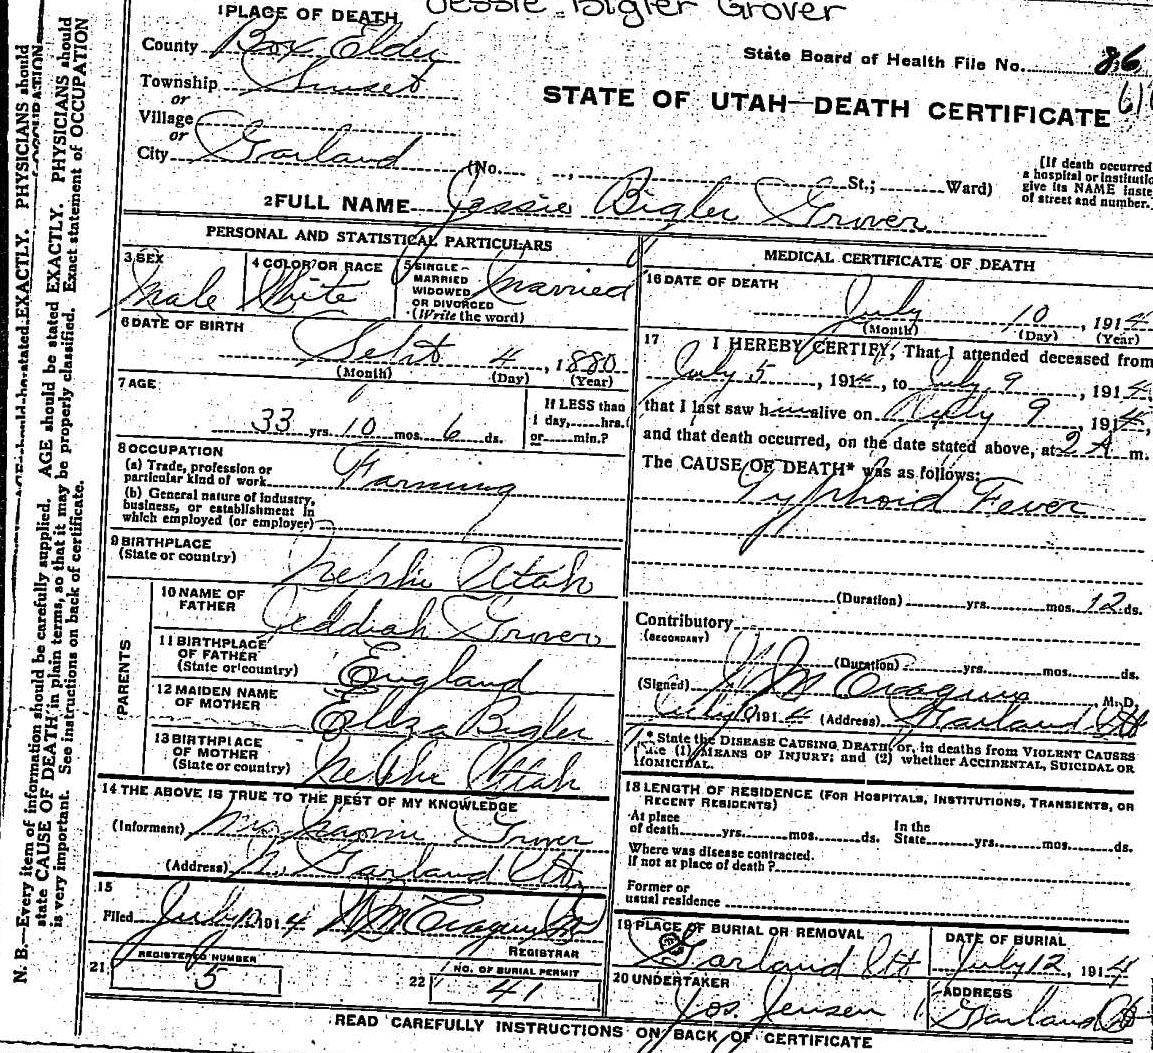 Jessie Bigler Grover
1 PLACE OF DEATH
County Box Elder
State Board of Health File No. 86
Township Sunset
or
STATE OF UTAH—DEATH CERTIFICATE
Village
or
City Garland
(No. , St.; Ward)
[If death occurred
a hospital or institutio
give its NAME inste
of street and number.
2 FULL NAME Jessie Bigler Grover
PERSONAL AND STATISTICAL PARTICULARS
3 SEX Male
4 COLOR OR RACE White
5 SINGLE
MARRIED
WIDOWED
OR DIVORCED
(Write the word)
Married
6 DATE OF BIRTH
Sept 4, 1880
(Month) (Day) (Year)
7 AGE
33 yrs. 10 mos. 6 ds.
If LESS than
1 day, hrs.
or min.?
8 OCCUPATION
(a) Trade, profession or
particular kind of work Farming
(b) General nature of industry,
business, or establishment in
which employed (or employer)
9 BIRTHPLACE
(State or country) Nephi Utah
PARENTS
10 NAME OF
FATHER Jeddiah Grover
11 BIRTHPLACE
OF FATHER
(State or country) England
12 MAIDEN NAME
OF MOTHER Eliza Bigler
13 BIRTHPLACE
OF MOTHER
(State or country) Nephi Utah
14 THE ABOVE IS TRUE TO THE BEST OF MY KNOWLEDGE
(Informant) Mrs Grover
(Address) N. Garland Ut
15
Filed July 1914 Wm
REGISTRAR
21 REGISTERED NUMBER
5
22 NO. OF BURIAL PERMIT
41
MEDICAL CERTIFICATE OF DEATH
16 DATE OF DEATH
July 10, 1914
(Month) (Day) (Year)
17 I HEREBY CERTIFY, That I attended deceased from
July 5, 1914, to July 9, 1914,
that I last saw him alive on July 9, 1914,
and that death occurred, on the date stated above, at 2 A m.
The CAUSE OF DEATH* was as follows:
Typhoid Fever
(Duration) yrs. mos. 12 ds.
Contributory
(SECONDARY)
(Duration) yrs. mos. ds.
(Signed) M. D.
July 1914 (Address) Garland Ut
* State the DISEASE CAUSING DEATH, or, in deaths from VIOLENT CAUSES
state (1) MEANS OF INJURY; and (2) whether ACCIDENTAL, SUICIDAL OR
HOMICIDAL.
18 LENGTH OF RESIDENCE (FOR HOSPITALS, INSTITUTIONS, TRANSIENTS, OR
RECENT RESIDENTS)
At place
of death yrs. mos. ds.
In the
State yrs. mos. ds.
Where was disease contracted.
if not at place of death?
Former or
usual residence
19 PLACE OF BURIAL OR REMOVAL
Garland Ut
DATE OF BURIAL
July 12, 1914
20 UNDERTAKER
Jos. Jensen
ADDRESS
Garland Ut
READ CAREFULLY INSTRUCTIONS ON BACK OF CERTIFICATE
N. B.—Every item of information should be carefully supplied. AGE should be stated EXACTLY. PHYSICIANS should
state CAUSE OF DEATH in plain terms, so that it may be properly classified. Exact statement of OCCUPATION
is very important. See instructions on back of certificate.